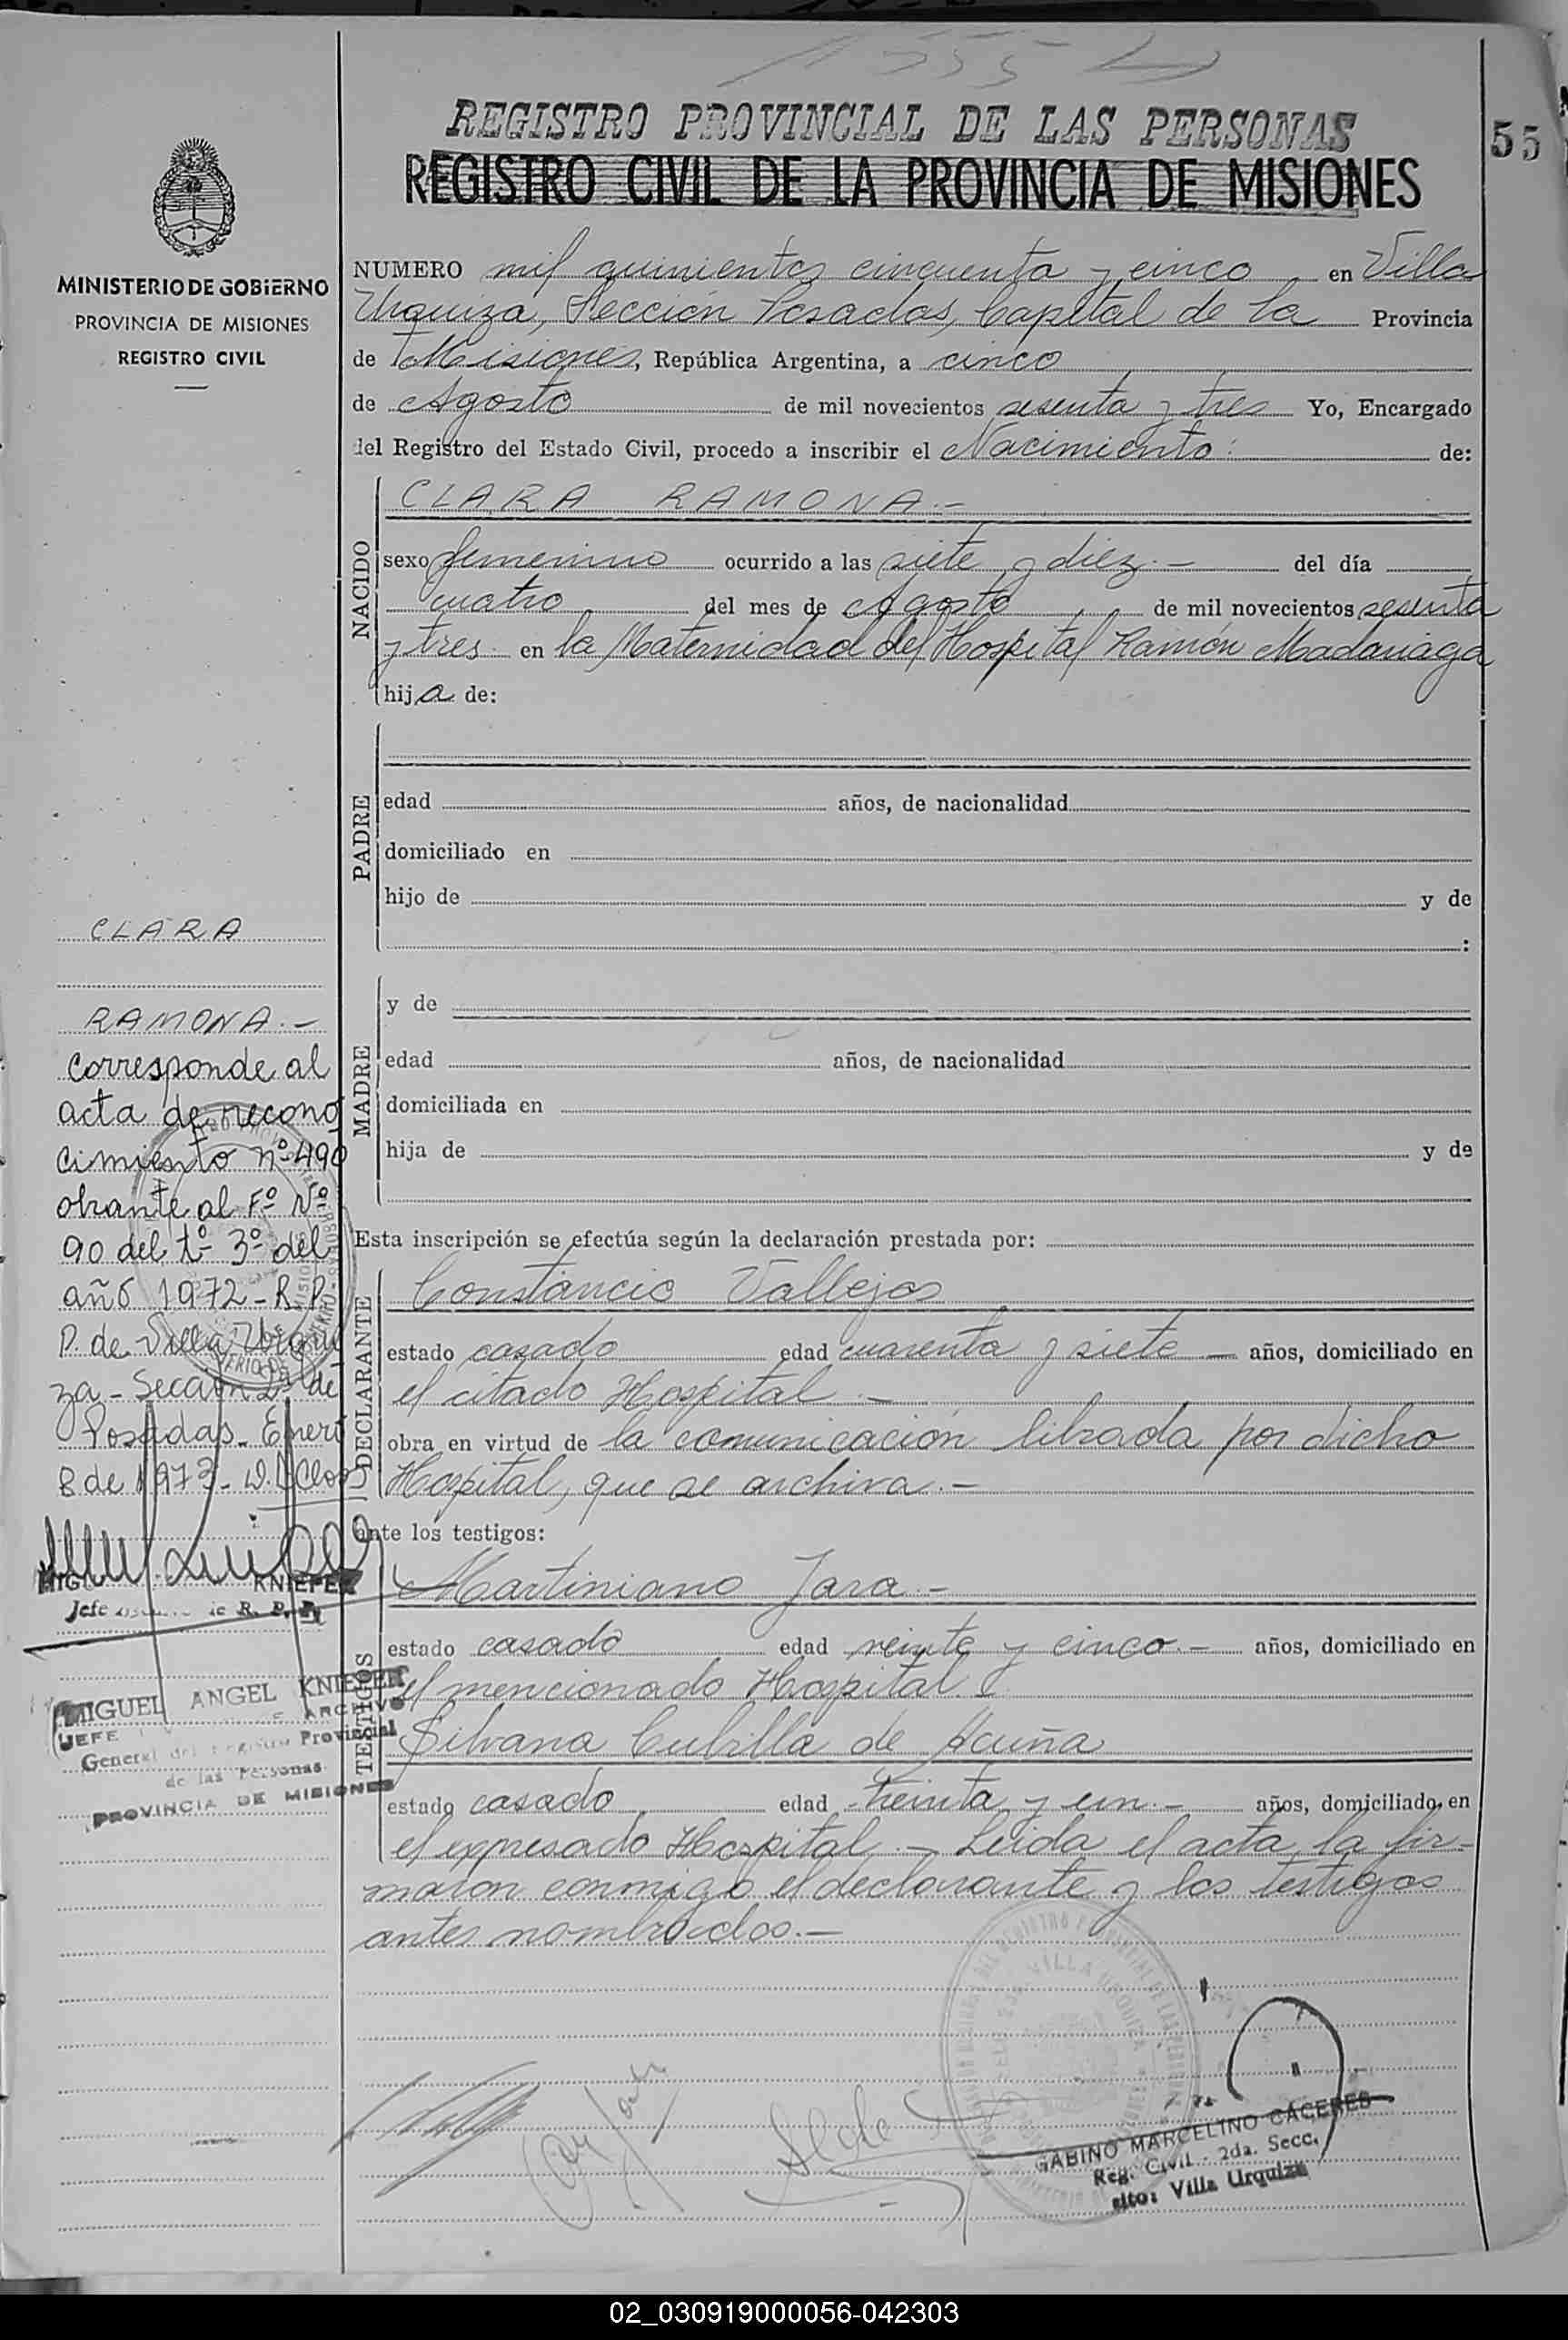 1555
REGISTRO PROVINCIAL DE LAS PERSONAS
REGISTRO CIVIL DE LA PROVINCIA DE MISIONES
55
MINISTERIO DE GOBIERNO
PROVINCIA DE MISIONES
REGISTRO CIVIL
NUMERO mil quinientos cincuenta y cinco en Villa
Urquiza, Sección Posadas, Capital de la Provincia
de Misiones, República Argentina, a cinco
de Agosto de mil novecientos sesenta y tres Yo, Encargado
del Registro del Estado Civil, procedo a inscribir el Nacimiento: de:
NACIDO
CLARA RAMONA.-
sexo femenino ocurrido a las siete y diez.- del día
cuatro del mes de Agosto de mil novecientos sesenta
y tres en la Maternidad del Hospital Ramón Madariaga
hija de:
PADRE
edad años, de nacionalidad
domiciliado en
hijo de y de
:
MADRE
y de
edad años, de nacionalidad
domiciliada en
hija de y de
Esta inscripción se efectúa según la declaración prestada por:
DECLARANTE
Constancio Vallejos
estado casado edad cuarenta y siete - años, domiciliado en
el citado Hospital.-
obra en virtud de la comunicación librada por dicho
Hospital, que se archiva.-
ante los testigos:
TESTIGOS
Martiniano Jara.-
estado casado edad veinte y cinco.- años, domiciliado en
el mencionado Hospital.
Silvana Cubilla de Acuña
estado casado edad treinta y un.- años, domiciliado en
el expresado Hospital.- Leida el acta la fir-
maron conmigo el declarante y los testigos
antes nombrados.-
CLARA
RAMONA.-
Corresponde al
acta de recono
cimiento nº 490
obrante al Fº Nº
90 del tº 3º del
año 1972 - R.P.
P. de Villa Urqui
za - Sección 2ª de
Posadas - Enero
8 de 1973 -
MIGUEL KNIEPER
Jefe de R. P. P.
MIGUEL ANGEL KNIEPER
JEFE ARCHIVO
General del Registro Provincial
de las Personas
PROVINCIA DE MISIONES
GABINO MARCELINO CÁCERES
Reg. Civil - 2da. Secc.
sito: Villa Urquiza
02_030919000056-042303